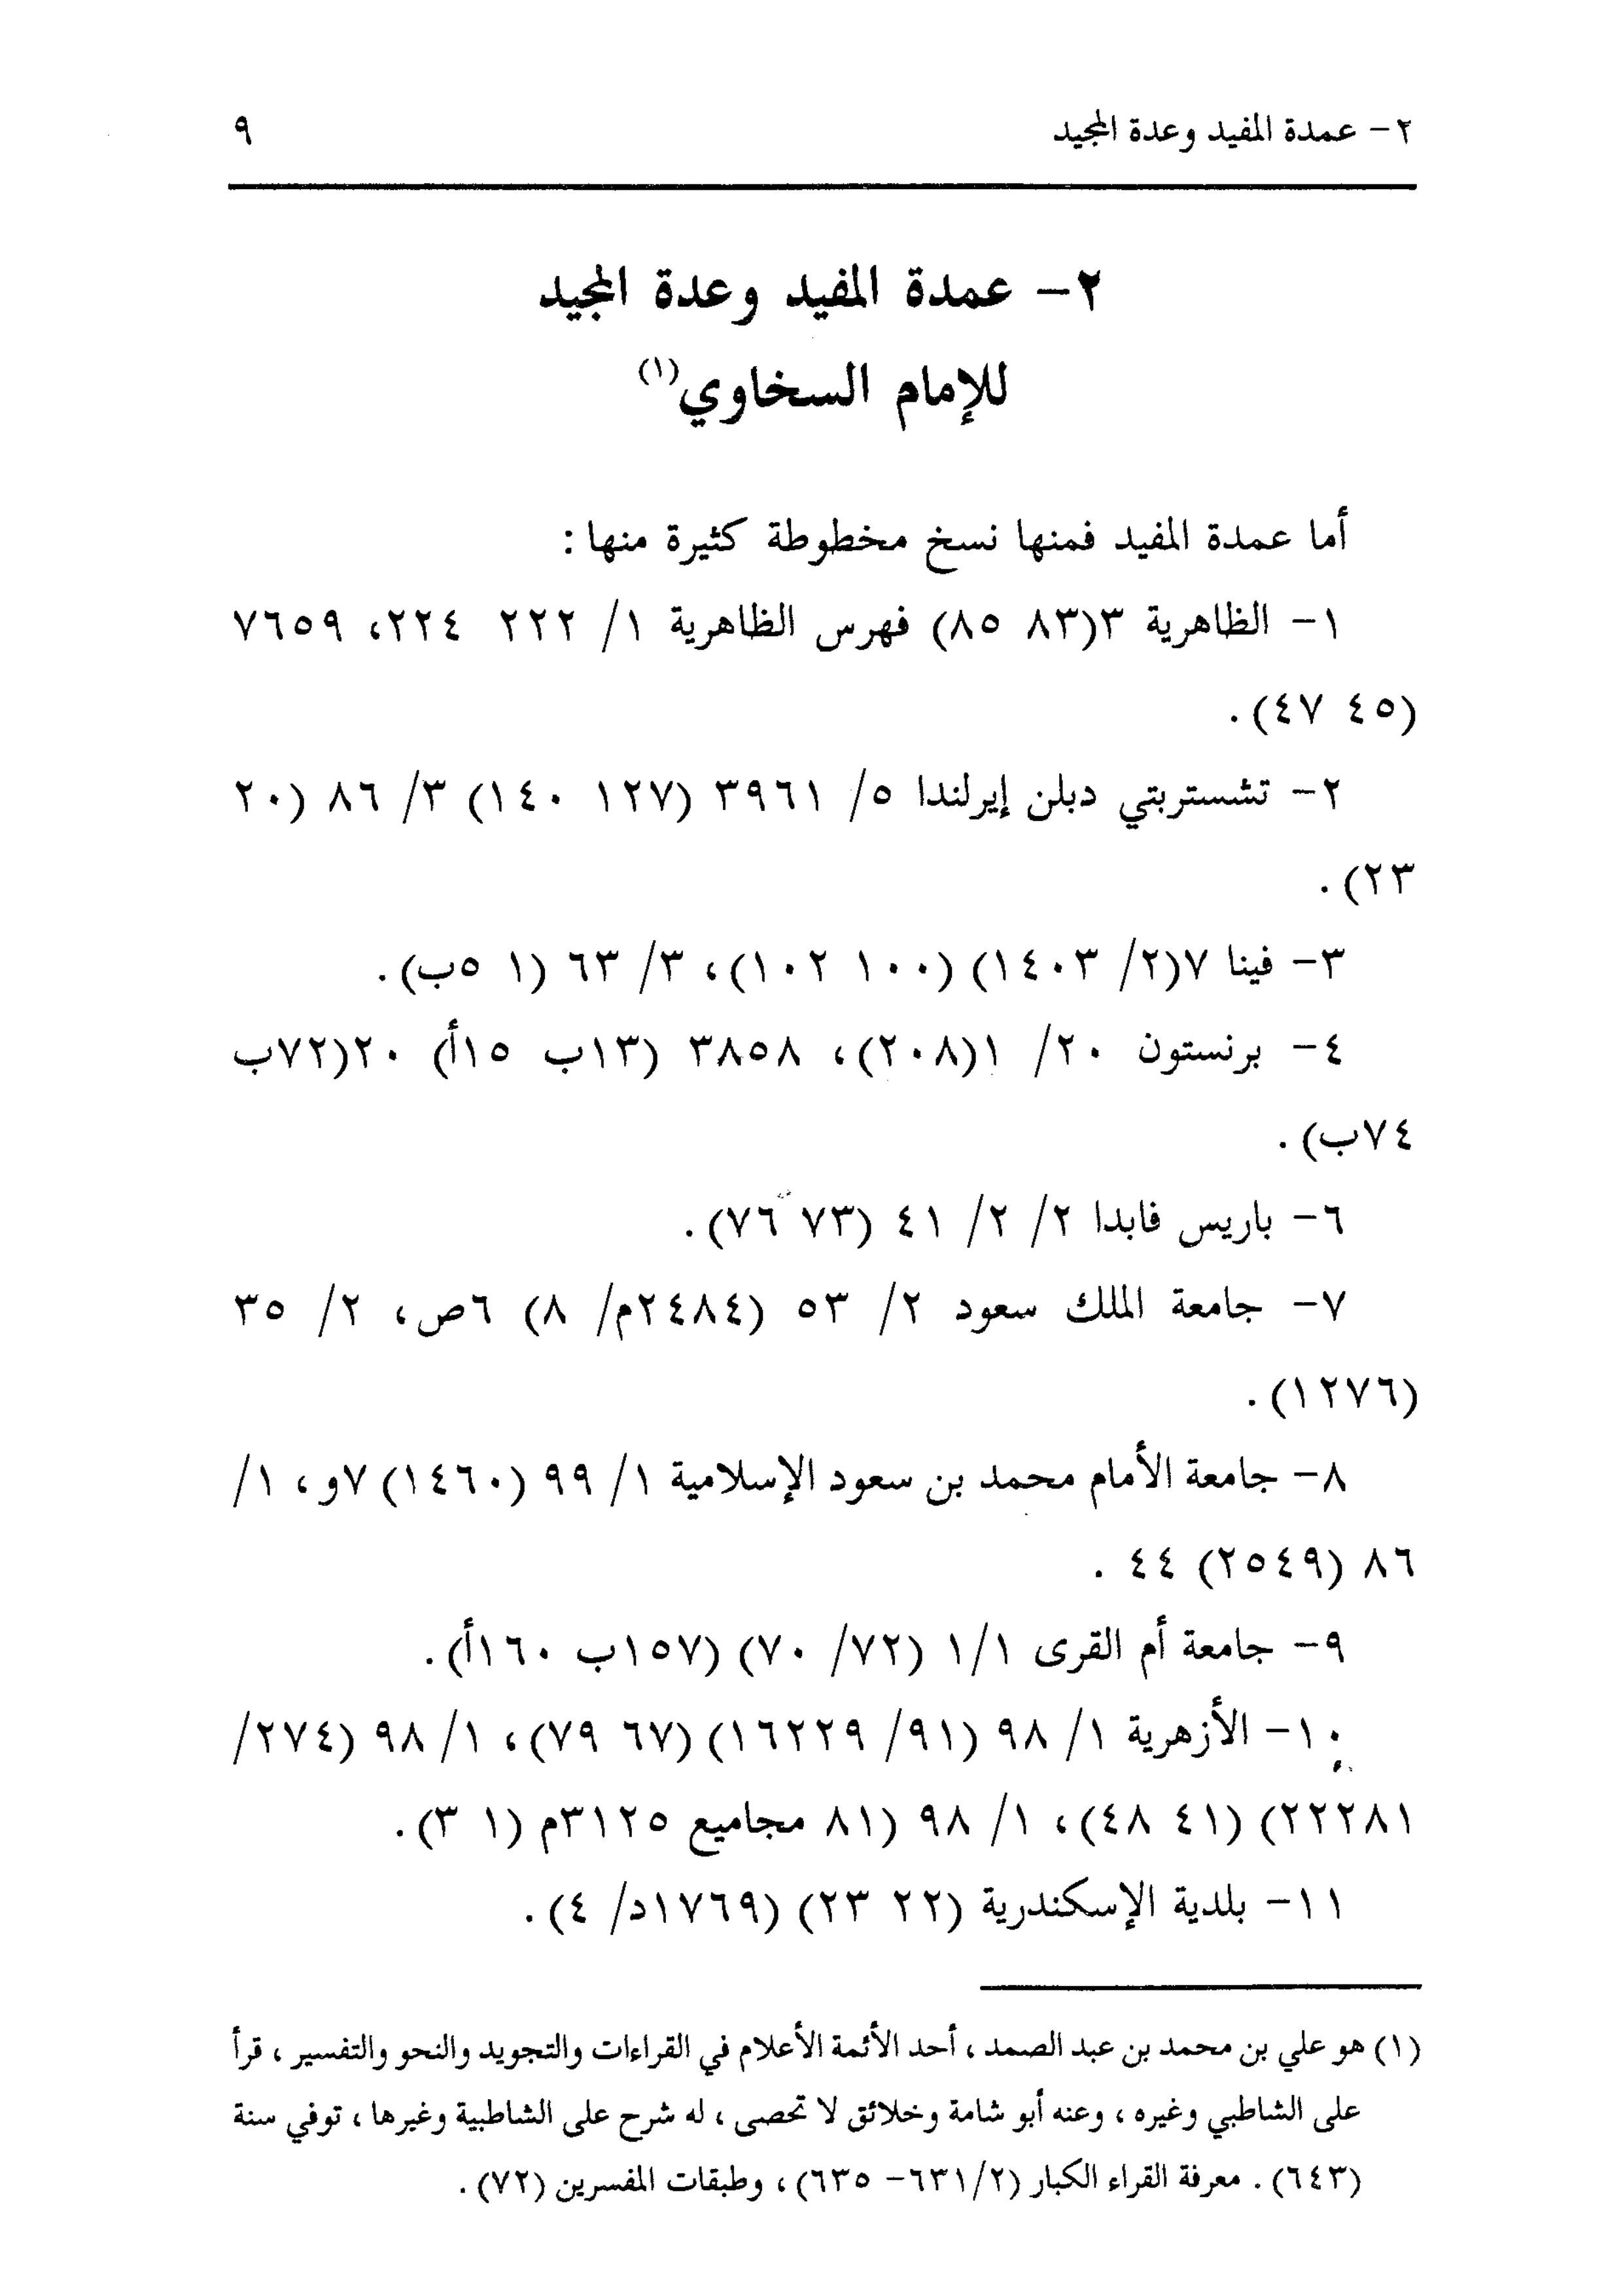 ٢- عمدة المفيد وعدة المجيد ٩
٢- عمدة المفيد وعدة المجيد
للإمام السخاوي(١)
أما عمدة المفيد فمنها نسخ مخطوطة كثيرة منها:
١- الظاهرية ٣(٨٣ ٨٥) فهرس الظاهرية ١/ ٢٢٢ ٢٢٤، ٧٦٥٩
(٤٥ ٤٧).
٢- تشستربتي دبلن إيرلندا ٥/ ٣٩٦١ (١٢٧ ١٤٠) ٣/ ٨٦ (٢٠
٢٣).
٣- فينا ٧(٢/ ١٤٠٣) (١٠٠ ١٠٢)، ٣/ ٦٣ (١ ٥ب).
٤- برنستون ٢٠/ ١(٢٠٨)، ٣٨٥٨ (١٣ب ١٥أ) ٢٠(٧٢ب
٧٤ب).
٦- باريس فابدا ٢/ ٢/ ٤١ (٧٣ ٧٦).
٧- جامعة الملك سعود ٢/ ٥٣ (٢٤٨٤م/ ٨) ٦ص، ٢/ ٣٥
(١٢٧٦).
٨- جامعة الأمام محمد بن سعود الإسلامية ١/ ٩٩ (١٤٦٠) ٧و، ١/
٨٦ (٢٥٤٩) ٤٤.
٩- جامعة أم القرى ١/١ (٧٢/ ٧٠) (١٥٧ب ١٦٠أ).
١٠- الأزهرية ١/ ٩٨ (٩١/ ١٦٢٢٩) (٦٧ ٧٩)، ١/ ٩٨ (٢٧٤/
٢٢٢٨١) (٤١ ٤٨)، ١/ ٩٨ (٨١ مجاميع ٣١٢٥م (١ ٣).
١١- بلدية الإسكندرية (٢٢ ٢٣) (١٧٦٩د/ ٤).
(١) هو علي بن محمد بن عبد الصمد، أحد الأئمة الأعلام في القراءات والتجويد والنحو والتفسير، قرأ
على الشاطبي وغيره، وعنه أبو شامة وخلائق لا تحصى، له شرح على الشاطبية وغيرها، توفي سنة
(٦٤٣). معرفة القراء الكبار (٢/٦٣١- ٦٣٥)، وطبقات المفسرين (٧٢).